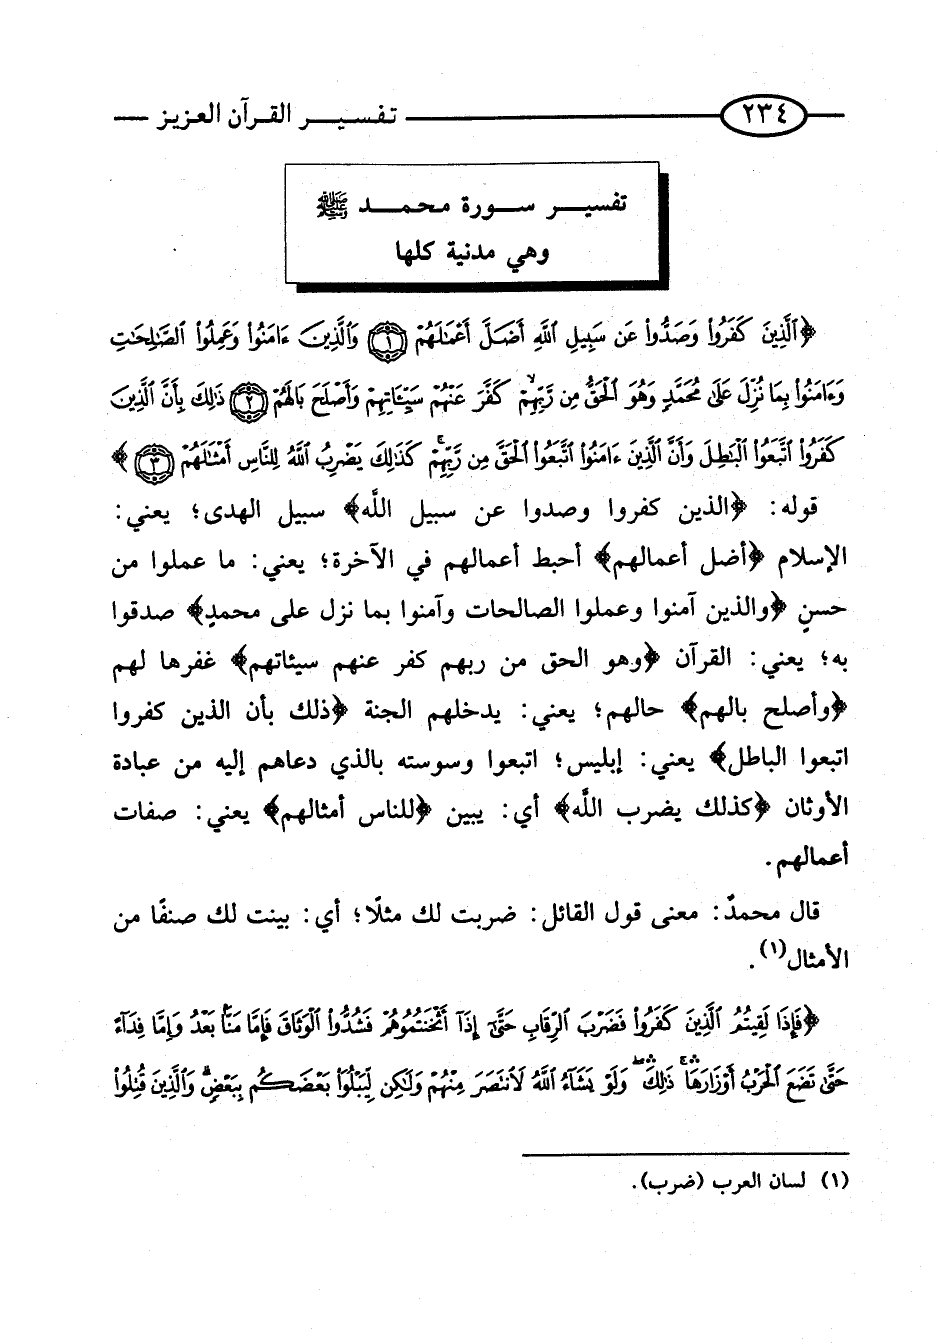 ٢٣٤ تفسير القرآن العزيز
تفسير سورة محمد ﷺ
وهي مدنية كلها
﴿ٱلَّذِينَ كَفَرُوا۟ وَصَدُّوا۟ عَن سَبِيلِ ٱللَّهِ أَضَلَّ أَعْمَـٰلَهُمْ ۝١ وَٱلَّذِينَ ءَامَنُوا۟ وَعَمِلُوا۟ ٱلصَّـٰلِحَـٰتِ
وَءَامَنُوا۟ بِمَا نُزِّلَ عَلَىٰ مُحَمَّدٍ وَهُوَ ٱلْحَقُّ مِن رَّبِّهِمْ ۙ كَفَّرَ عَنْهُمْ سَيِّـَٔاتِهِمْ وَأَصْلَحَ بَالَهُمْ ۝٢ ذَٰلِكَ بِأَنَّ ٱلَّذِينَ
كَفَرُوا۟ ٱتَّبَعُوا۟ ٱلْبَـٰطِلَ وَأَنَّ ٱلَّذِينَ ءَامَنُوا۟ ٱتَّبَعُوا۟ ٱلْحَقَّ مِن رَّبِّهِمْ ۚ كَذَٰلِكَ يَضْرِبُ ٱللَّهُ لِلنَّاسِ أَمْثَـٰلَهُمْ ۝٣ ﴾
قوله: ﴿الذين كفروا وصدوا عن سبيل اللَّه﴾ سبيل الهدى؛ يعني:
الإسلام ﴿أضل أعمالهم﴾ أحبط أعمالهم في الآخرة؛ يعني: ما عملوا من
حسنٍ ﴿والذين آمنوا وعملوا الصالحات وآمنوا بما نزل على محمدٍ﴾ صدقوا
به؛ يعني: القرآن ﴿وهو الحق من ربهم كفر عنهم سيئاتهم﴾ غفرها لهم
﴿وأصلح بالهم﴾ حالهم؛ يعني: يدخلهم الجنة ﴿ذلك بأن الذين كفروا
اتبعوا الباطل﴾ يعني: إبليس؛ اتبعوا وسوسته بالذي دعاهم إليه من عبادة
الأوثان ﴿كذلك يضرب اللَّه﴾ أي: يبين ﴿للناس أمثالهم﴾ يعني: صفات
أعمالهم.
قال محمدٌ: معنى قول القائل: ضربت لك مثلًا؛ أي: بينت لك صنفًا من
الأمثال(١).
﴿فَإِذَا لَقِيتُمُ ٱلَّذِينَ كَفَرُوا۟ فَضَرْبَ ٱلرِّقَابِ حَتَّىٰٓ إِذَآ أَثْخَنتُمُوهُمْ فَشُدُّوا۟ ٱلْوَثَاقَ فَإِمَّا مَنًّۢا بَعْدُ وَإِمَّا فِدَآءً
حَتَّىٰ تَضَعَ ٱلْحَرْبُ أَوْزَارَهَا ۚ ذَٰلِكَ ۖ وَلَوْ يَشَآءُ ٱللَّهُ لَٱنتَصَرَ مِنْهُمْ وَلَـٰكِن لِّيَبْلُوَا۟ بَعْضَكُم بِبَعْضٍ ۗ وَٱلَّذِينَ قُتِلُوا۟
(١) لسان العرب (ضرب).